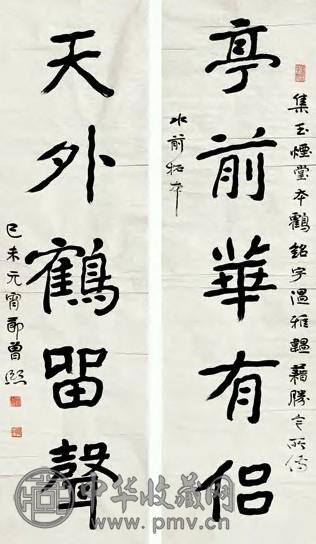 集玉煙堂本鶴銘字温雅韞藉勝它所傳
亭前華有侣
水前拓本
天外鶴畱聲
己未元宵節曾熙
中华收藏网
www.pmv.cn